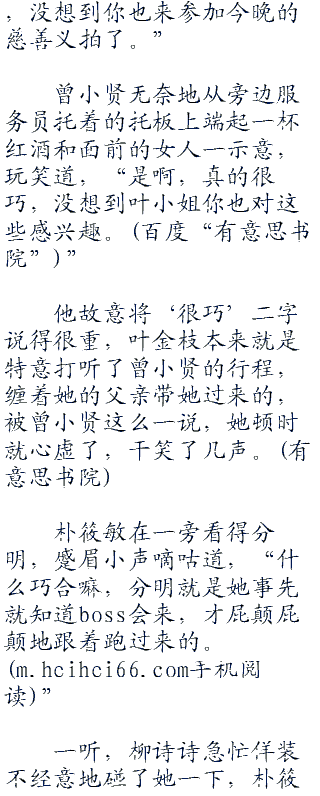 ，没想到你也来参加今晚的
慈善义拍了。”
曾小贤无奈地从旁边服
务员托着的托板上端起一杯
红酒和面前的女人一示意，
玩笑道，“是啊，真的很
巧，没想到叶小姐你也对这
些感兴趣。(百度“有意思书
院”)”
他故意将‘很巧’二字
说得很重，叶金枝本来就是
特意打听了曾小贤的行程，
缠着她的父亲带她过来的，
被曾小贤这么一说，她顿时
就心虚了，干笑了几声。(有
意思书院)
朴筱敏在一旁看得分
明，蹙眉小声嘀咕道，“什
么巧合嘛，分明就是她事先
就知道boss会来，才屁颠屁
颠地跟着跑过来的。
(m.hcihci66.com手机阅
读)”
一听，柳诗诗急忙佯装
不经意地碰了她一下，朴筱